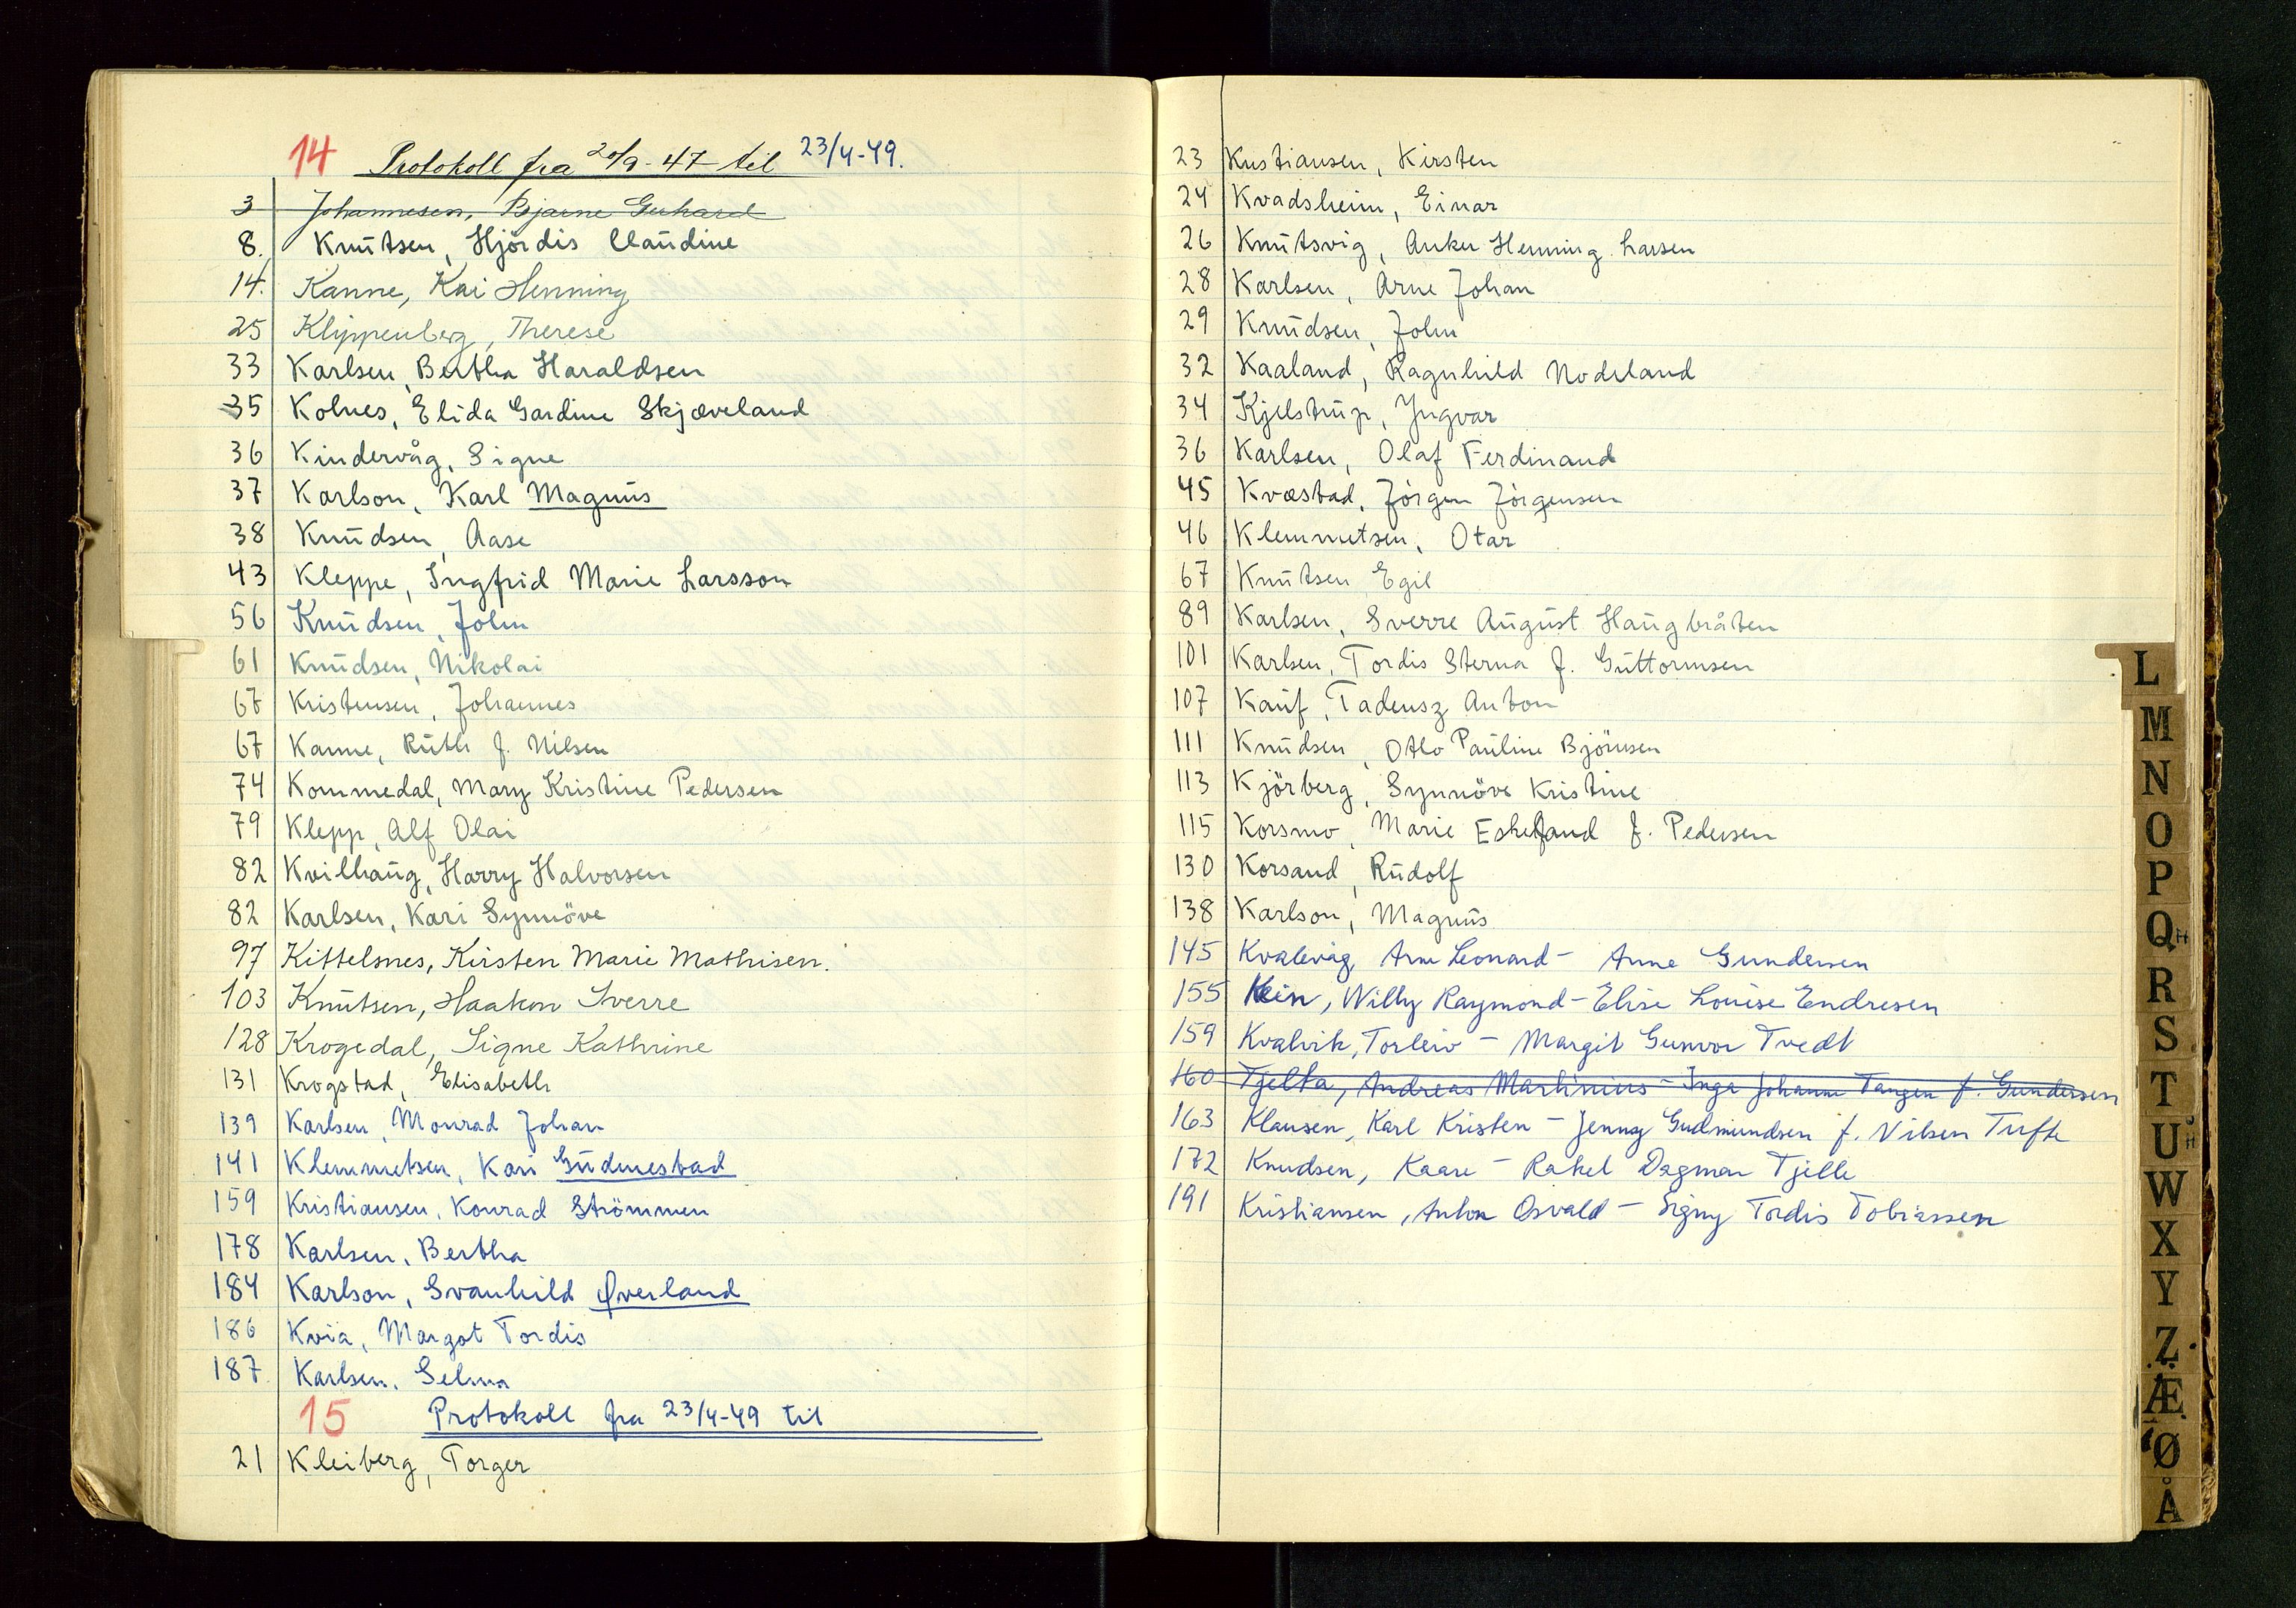 14 Protokoll fra 20/9-47 til 23/4-49.
3 Johannesen, Bjarne Gerhard
8. Knutsen, Hjördis Claudine
14. Kanne, Kai Henning
25 Klippenberg, Therese
33 Karlsen, Bertha Haraldsen
35 Kolnes, Elida Gardine Skjæveland
36 Kindervåg, Signe
37 Karlson, Karl Magnus
38 Knudsen, Aase
43 Kleppe, Ingfrid Marie Larsson
56 Knudsen, John
61 Knudsen, Nikolai
67 Kristensen, Johannes
67 Kanne, Ruth f. Nilsen
74 Kommedal, Mary Kristine Pedersen
79 Klepp, Alf Olai
82 Kvilhaug, Harry Halvorsen
82 Karlsen, Kari Synnöve
97 Kittelsnes, Kirsten Marie Mathisen.
103 Knutsen, Haakon Sverre
128 Krogedal, Signe Kathrine
131 Krogstad, Elisabeth
139 Karlsen, Monrad Johan
141 Klemmetsen, Kari Gudmestad
159 Kristiansen, Konrad Strömmen
178 Karlsen, Bertha
184 Karlson, Svanhild Øverland
186 Kvia, Margot Tordis
187. Karlsen, Selma
15 Protokoll fra 23/4-49 til
21 Kleiberg, Torger
23 Kristiansen, Kirsten
24 Kvadsheim, Einar
26 Knutsvig, Anker Henning Larsen
28 Karlsen, Arne Johan
29 Knudsen, John
32 Kaaland, Ragnhild Nodeland
34 Kjelstrup, Yngvar
36 Karlsen, Olaf Ferdinand
45 Kvæstad, Jörgen Jörgensen
46 Klemmetsen, Otar
67 Knutsen Egil
89 Karlsen, Sverre August Haugbråten
101 Karlsen, Tordis Sterna f. Guttormsen
107 Kauf, Tadeusz Anton
111 Knudsen, Otto Pauline Björnsen
113 Kjörberg, Synnöve Kristine
115 Korsmo, Marie Eskeland f. Pedersen
130 Korsand, Rudolf
138 Karlson, Magnus
145 Kvalevåg, Arne Leonard - Anne Gundersen
155 Klein, Willy Raymond - Elise Louise Endresen
159 Kvalvik, Torleiv - Margit Gunvor Tvedt
160 Tjelta, Andreas Martinius - Inga Johanne Tangen f. Gundersen
163 Klausen, Karl Kristen - Jenny Gudmundsen f. Nilsen Tufte
172 Knudsen, Kaare - Rakel Dagmar Tjelle
191 Kristiansen, Anton Osvald - Signy Tordis Tobiassen
L
M
N
O
P
Q
R
S
T
U
W
X
Y
Z
Æ
Ø
Å